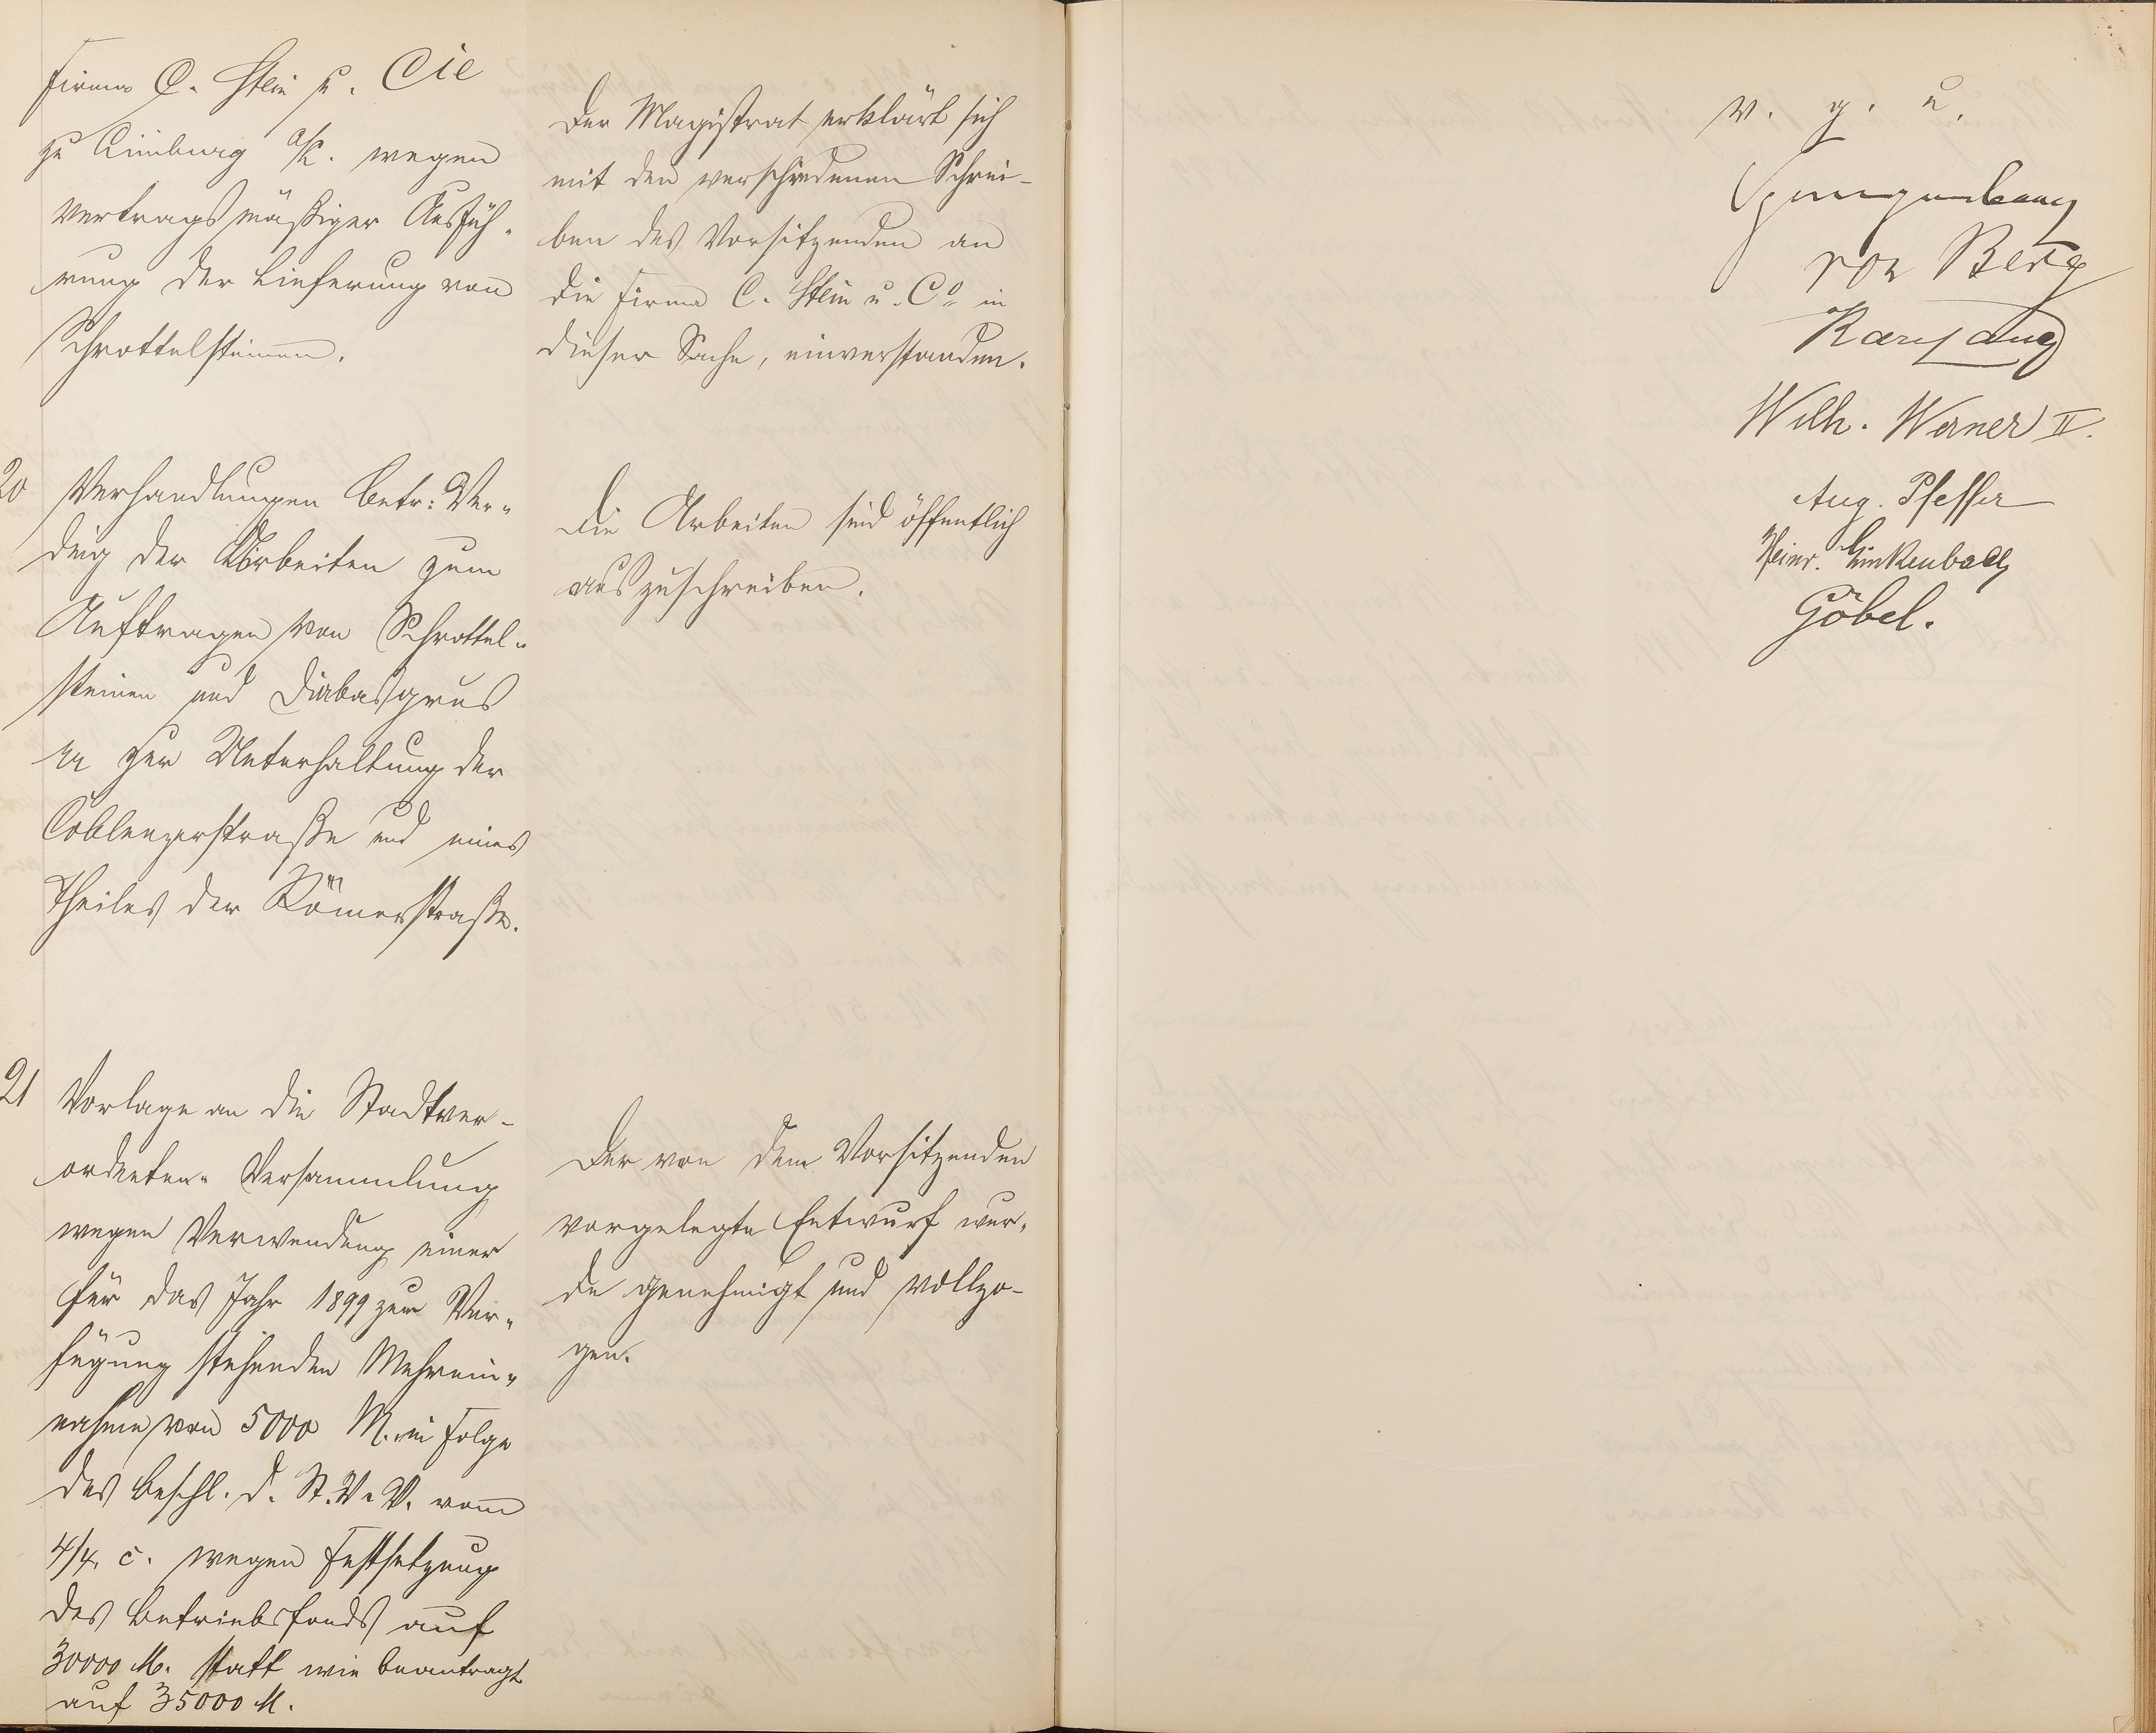 Firma C. Stein u. Cie
zu Limburg a/L. wegen
vertragsmäßiger Ausfüh-
rung der Lieferung von
Schrottelsteinen.
Der Magistrat erklärt sich
mit den verschiedenen Schrei-
ben des Vorsitzenden an
die Firma C. Stein u. Co in
dieser Sache, einverstanden.
20 Verhandlungen betr: Ver-
ding der Arbeiten zum
Auftragen von Schrottel-
steinen und Diabasgrus
zur Unterhaltung der
Coblenzerstraße und eines
Theiles der Römerstraße.
Die Arbeiten sind öffentlich
auszuschreiben.
21 Vorlage an die Stadtver-
ordneten-Versammlung
wegen Verwendung einer
für das Jahr 1899 zur Ver-
fügung stehenden Mehrein-
nahme von 5000 M. in Folge
des Beschl. d. St. V. V. vom
4/4. c. wegen Festsetzung
des Betriebsfonds auf
30000 M. statt wie beantragt
auf 35000 M.
Der von dem Vorsitzenden
vorgelegte Entwurf wur-
de genehmigt und vollzo-
gen.
v. g. u.
von Berg
Wilh. Werner II.
Aug. Pfeffer
Heinr. Linkenbach
Göbel.